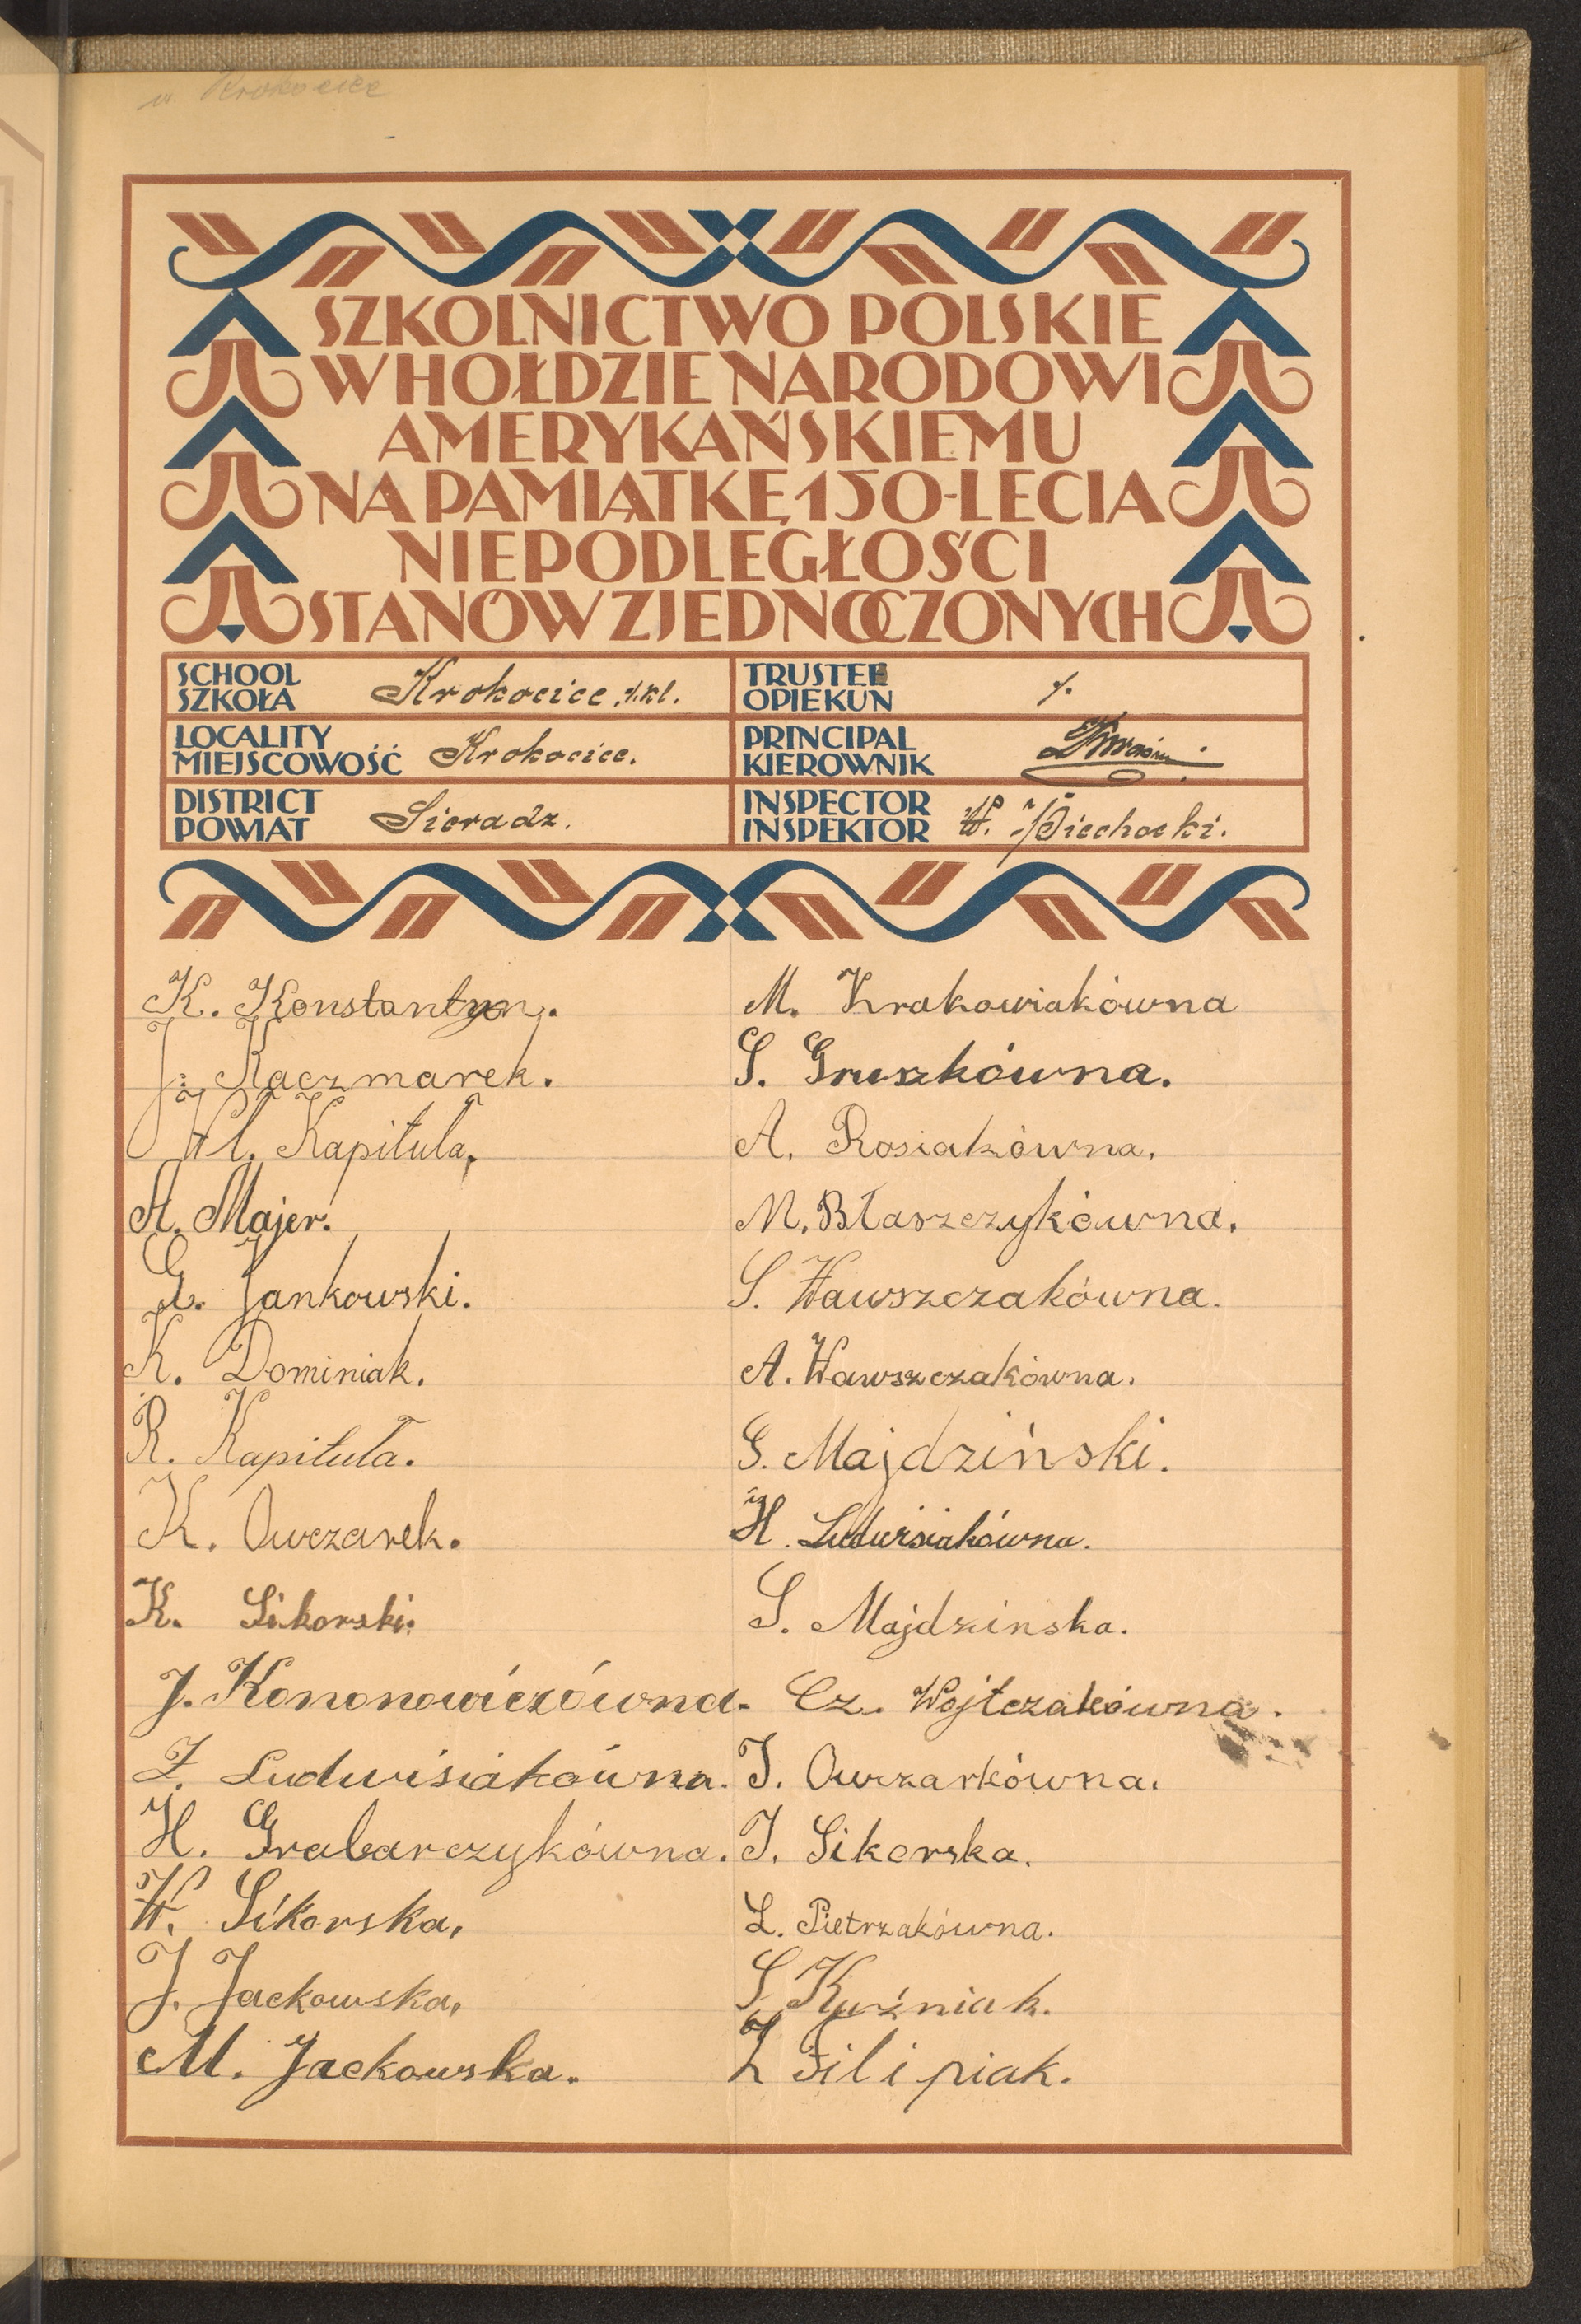 w Krokocice
SZKOLNICTWO POLSKIE
W HOŁDZIE NARODOWI
AMERYKAŃSKIEMU
NA PAMIĄTKĘ 150-LECIA
NIEPODLEGŁOŚCI
STANÓW ZJEDNOCZONYCH
SCHOOL
SZKOŁA
Krokocice. 1.kl.
TRUSTEE
OPIEKUN
LOCALITY
MIEJSCOWOŚĆ
Krokocice.
PRINCIPAL
KIEROWNIK
DISTRICT
POWIAT
Sieradz.
INSPECTOR
INSPEKTOR
W. Piechocki.
K. Konstantyn.
J. Kaczmarek.
Wl. Kapituła.
A. Majer.
G. Jankowski.
K. Dominiak.
R. Kapituła.
K. Owczarek.
K. Sikorski.
J. Kononowiczówna.
Z. Ludwisiakówna.
H. Grabarczykówna.
W. Sikorska.
J. Jackowska.
M. Jackowska.
M. Krakowiakówna
S. Gruszkówna.
A. Rosiakówna.
M. Błaszczykówna.
S. Wawszczakówna.
A. Wawszczakówna.
G. Majdziński.
H. Ludwisiakówna.
S. Majdzinska.
Cz. Wojtczakówna.
J. Owczarkówna.
J. Sikorska.
L. Pietrzakówna.
S. Kuźniak.
Z Filipiak.